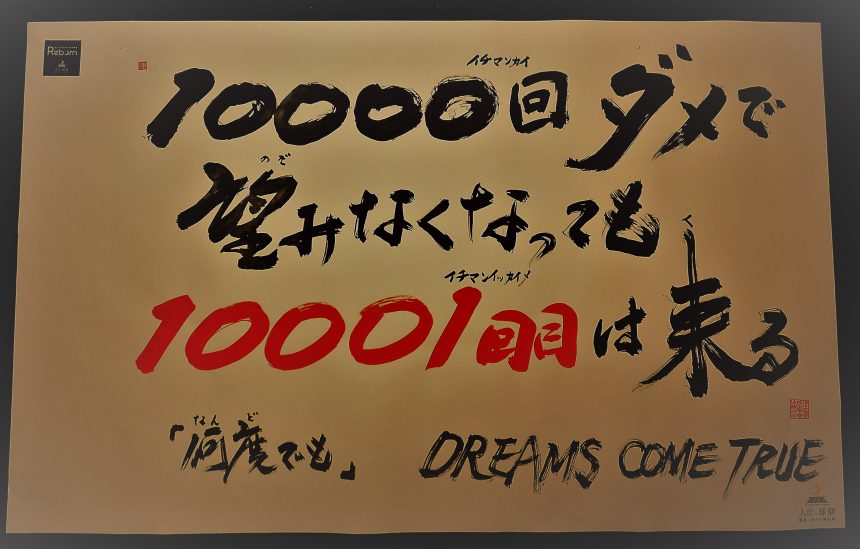 Reborn
イチマンカイ
10000回ダメで
のぞ
望みなくなっても
く
イチマンイッカイメ
10001回目は来る
なんど
「何度でも」 DREAMS COME TRUE
人吉・球磨